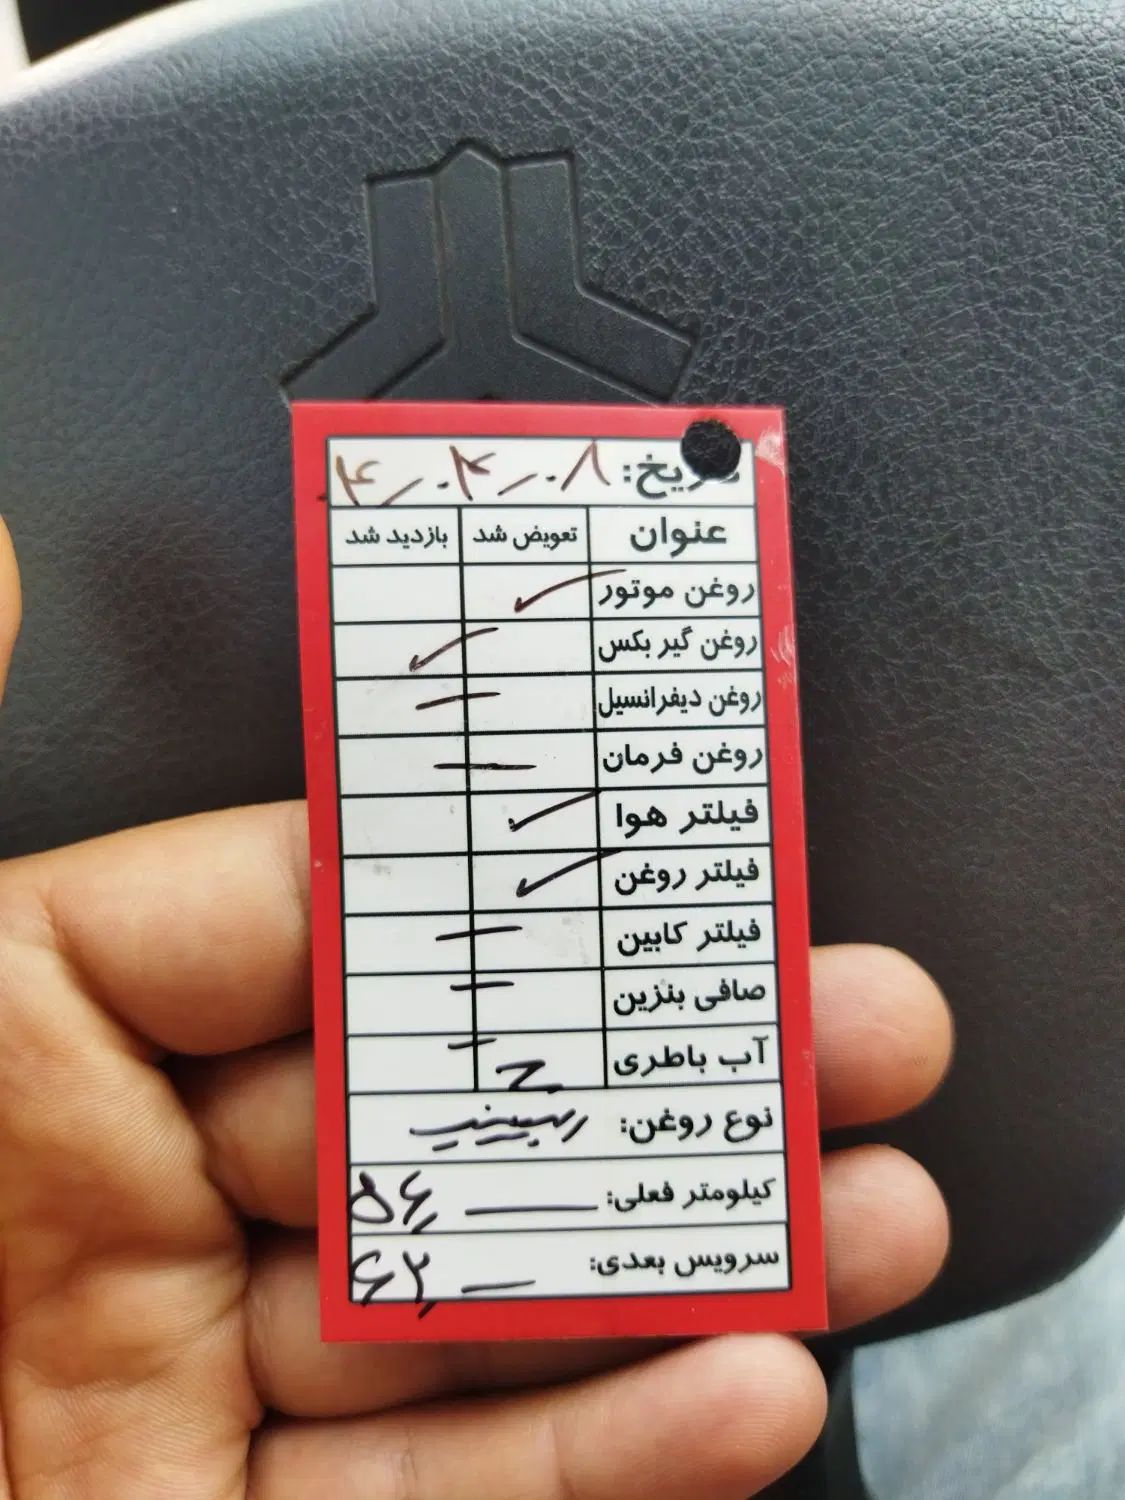 تاریخ: ۴/۰۴/۰۸
عنوان تعویض شد بازدید شد
روغن موتور ✓
روغن گیر بکس ✓
روغن دیفرانسیل —
روغن فرمان —
فیلتر هوا ✓
فیلتر روغن ✓
فیلتر کابین —
صافی بنزین —
آب باطری —
نوع روغن:
کیلومتر فعلی: ۵۶,
سرویس بعدی: ۶۲,